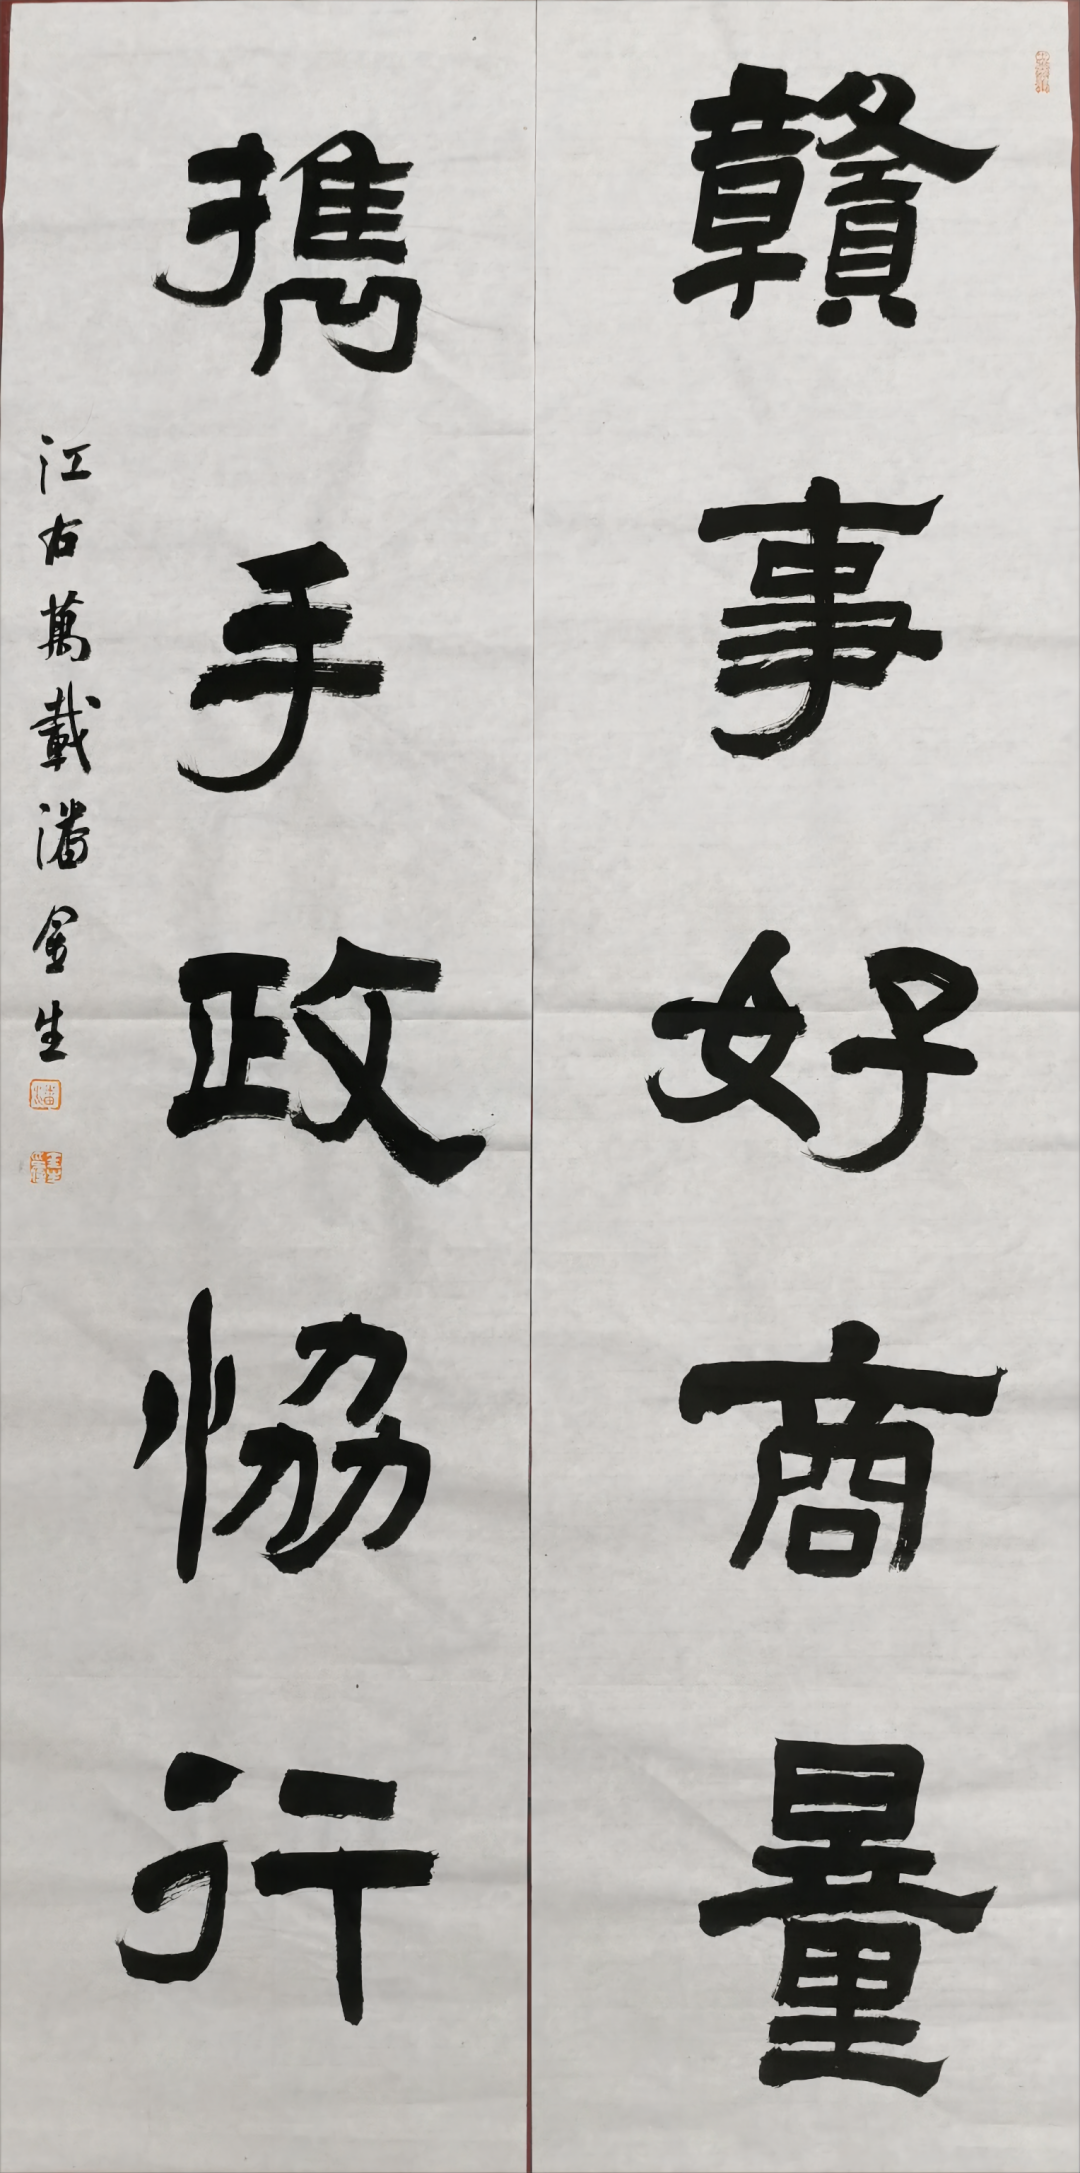 贛事好商量
攜手政協行
江右萬載潘金生